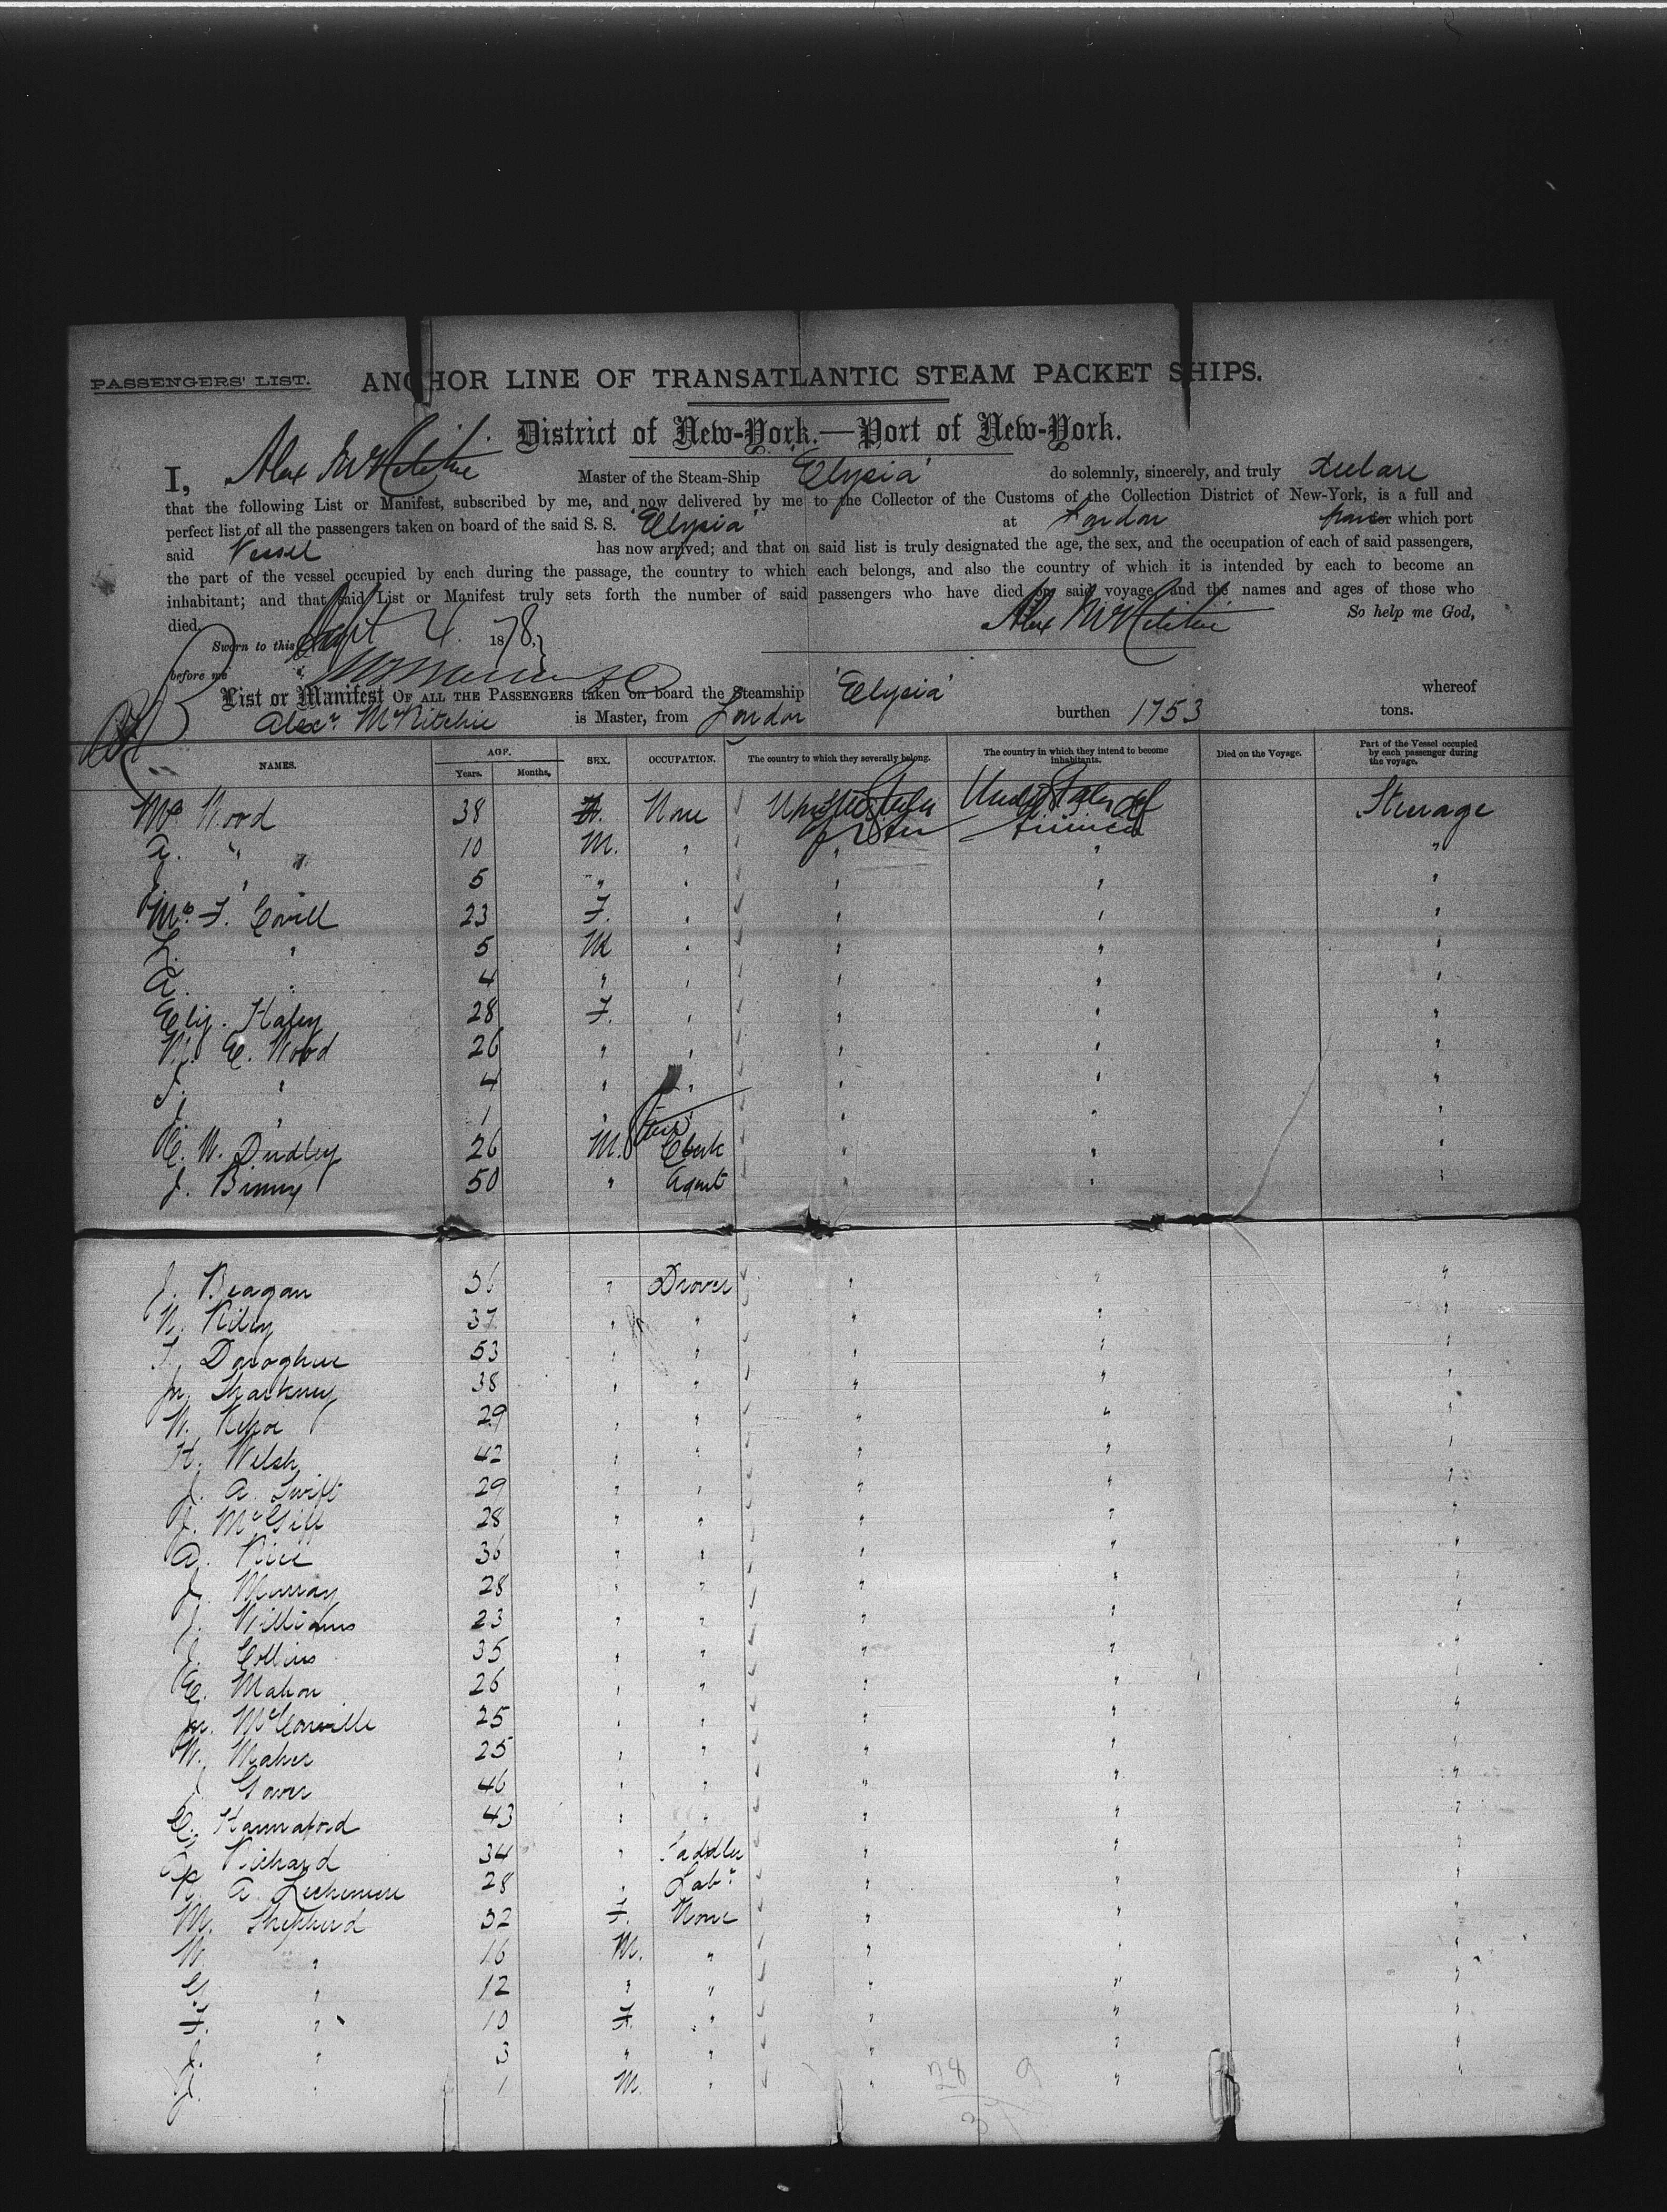 PASSENGERS' LIST. ANCHOR LINE OF TRANSATLANTIC STEAM PACKET SHIPS.
District of New-York.—Port of New-York.
I, Alex McRitchie Master of the Steam-Ship 'Elysia' do solemnly, sincerely, and truly declare
that the following List or Manifest, subscribed by me, and now delivered by me to the Collector of the Customs of the Collection District of New-York, is a full and
perfect list of all the passengers taken on board of the said S. S. 'Elysia' at London from which port
said Vessel has now arrived; and that on said list is truly designated the age, the sex, and the occupation of each of said passengers,
the part of the vessel occupied by each during the passage, the country to which each belongs, and also the country of which it is intended by each to become an
inhabitant; and that said List or Manifest truly sets forth the number of said passengers who have died on said voyage, and the names and ages of those who
died. So help me God,
Sworn to this Sept 4 1878, Alex McRitchie
before me
List or Manifest OF ALL THE PASSENGERS taken on board the Steamship 'Elysia' whereof
Alexr. McRitchie is Master, from London burthen 1753 tons.
NAMES. AGE. Years. Months, SEX. OCCUPATION. The country to which they severally belong. The country in which they intend to become inhabitants. Died on the Voyage. Part of the Vessel occupied by each passenger during the voyage.
Mrs Wood 38 F. None United States United States of America Steerage
A. " 10 M. " " " "
J " 5 " " " " "
Mrs F. Covill 23 F. " " " "
L. " 5 M " " " "
A. " 4 " " " " "
Eliz. Haley 28 F. " " " "
M. E. Wood 26 " " " " "
J. " 4 " " " " "
J " 1 " " " " "
C. W. Dudley 26 M. Clerk " " "
J. Binny 50 " Agent " " "
J. Reagan 36 " Drover " " "
W. Riley 37 " " " " "
T. Donoghue 53 " " " " "
M. Sharkney 38 " " " " "
W. Kehoe 29 " " " " "
H. Welsh 42 " " " " "
J. A. Swift 29 " " " " "
J. McGiff 28 " " " " "
A. Rice 36 " " " " "
J. Murray 28 " " " " "
J. Williams 23 " " " " "
J. Collins 35 " " " " "
C. Mahon 26 " " " " "
M. McConville 25 " " " " "
W. Maher 25 " " " " "
J Gower 46 " " " " "
C. Hannaford 43 " " " " "
Richard 34 " Saddler " " "
A. 28 " Labr. " " "
M. Shepherd 32 F. None " " "
W " 16 M. " " " "
G. " 12 " " " " "
F. " 10 F. " " " "
J. " 3 " " " " "
J. " 1 M. " " " "
28 9
3